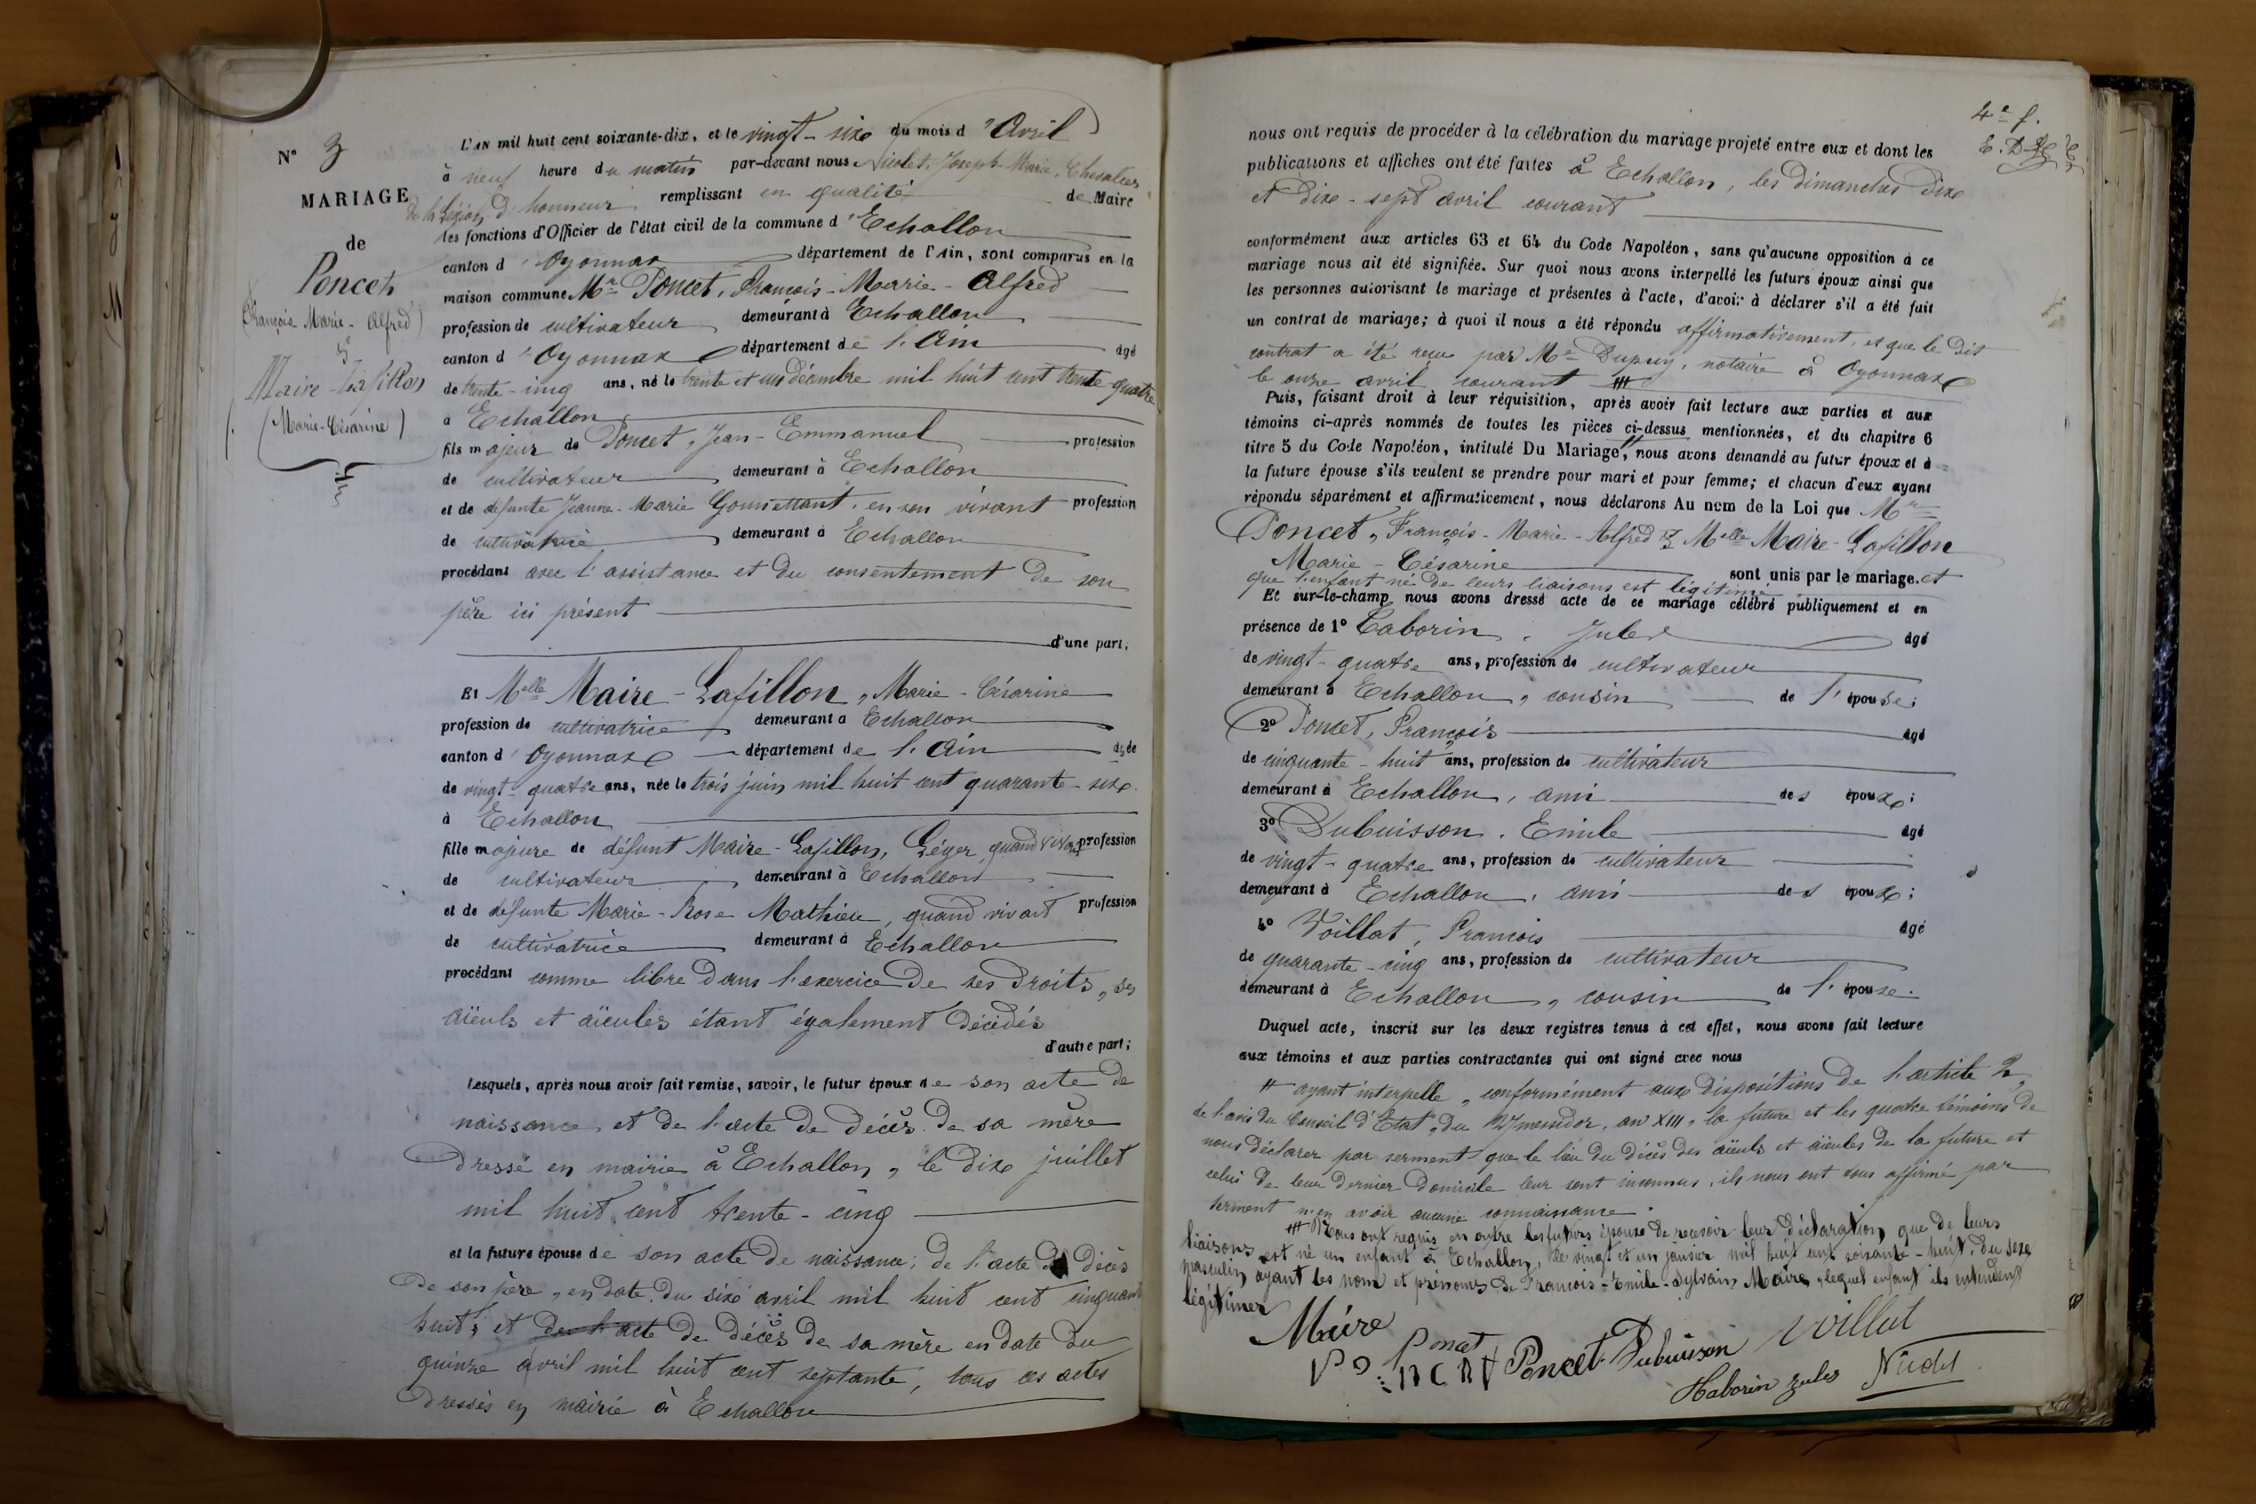 N° 3
MARIAGE
de
Poncet
(François Marie-Alfred)
&
Maire-Lafillon
(Marie-Césarine)
L'AN mil huit cent soixante-dix, et le vingt-six du mois d'Avril
à neuf heure du matin par-devant nous Nicolet, Joseph-Marie, Chevalier
de la Légion d'honneur remplissant en qualité de Maire
les fonctions d'Officier de l'état civil de la commune d'Echallon
canton d'Oyonnax département de l'Ain, sont comparus en la
maison commune Mr Poncet, François-Marie-Alfred
profession de cultivateur demeurant à Echallon
canton d'Oyonnax département de l'Ain âgé
de trente-cinq ans, né le trente et un décembre mil huit cent trente quatre
à Echallon
fils majeur de Poncet, Jean-Emmanuel profession
de cultivateur demeurant à Echallon
et de défunte Jeanne-Marie en son vivant profession
de cultivatrice demeurant à Echallon
procédant avec l'assistance et du consentement de son
père ici présent
d'une part;
Et Melle Maire-Lafillon, Marie-Césarine
profession de cultivatrice demeurant à Echallon
canton d'Oyonnax département de l'Ain âgée
de vingt-quatre ans, née le trois juin mil huit cent quarante-six
à Echallon
fille majeure de défunt Maire-Lafillon, Léger, quand vivait profession
de cultivateur demeurant à Echallon
et de défunte Marie-Rose Mathieu, quand vivait profession
de cultivatrice demeurant à Echallon
procédant comme libre dans l'exercice de ses droits, ses
aïeuls et aïeules étant également décédés
d'autre part;
Lesquels, après nous avoir fait remise, savoir, le futur époux de son acte de
naissance et de l'acte de décès de sa mère
dressé en mairie à Echallon, le dix juillet
mil huit cent trente-cinq
et la future épouse de son acte de naissance; de l'acte de décès
de son père, en date du six avril mil huit cent cinquante
huit, et de l'acte de décès de sa mère en date du
quinze avril mil huit cent septante, tous ces actes
dressés en mairie à Echallon
4e f.
nous ont requis de procéder à la célébration du mariage projeté entre eux et dont les
publications et affiches ont été faites à Echallon, les dimanches dix
et dix-sept avril courant
conformément aux articles 63 et 64 du Code Napoléon, sans qu'aucune opposition à ce
mariage nous ait été signifiée. Sur quoi nous avons interpellé les futurs époux ainsi que
les personnes autorisant le mariage et présentes à l'acte, d'avoir à déclarer s'il a été fait
un contrat de mariage; à quoi il nous a été répondu affirmativement, et que le dit
contrat a été reçu par Me Dupuy, notaire à Oyonnax
le onze avril courant #
Puis, faisant droit à leur réquisition, après avoir fait lecture aux parties et aux
témoins ci-après nommés de toutes les pièces ci-dessus mentionnées, et du chapitre 6
titre 5 du Code Napoléon, intitulé Du Mariage, # nous avons demandé au futur époux et à
la future épouse s'ils veulent se prendre pour mari et pour femme; et chacun d'eux ayant
répondu séparément et affirmativement, nous déclarons Au nom de la Loi que Mr
Poncet, François-Marie-Alfred & Melle Maire-Lafillon
Marie-Césarine sont unis par le mariage. et
que l'enfant né de leurs liaisons est légitimé
Et sur-le-champ nous avons dressé acte de ce mariage célébré publiquement et en
présence de 1° Laborin, Jules âgé
de vingt-quatre ans, profession de cultivateur
demeurant à Echallon, cousin de l'épouse;
2° Poncet, François âgé
de cinquante-huit ans, profession de cultivateur
demeurant à Echallon, ami des époux;
3° Dubuisson, Emile âgé
de vingt-quatre ans, profession de cultivateur
demeurant à Echallon, ami des époux;
4° Voillat, François âgé
de quarante-cinq ans, profession de cultivateur
demeurant à Echallon, cousin de l'épouse.
Duquel acte, inscrit sur les deux registres tenus à cet effet, nous avons fait lecture
aux témoins et aux parties contractantes qui ont signé avec nous
# ayant interpellé, conformément aux dispositions de l'article 2,
de l'avis du Conseil d'Etat, du messidor, an XIII, la future et les quatre témoins de
nous déclarer par serment que le lieu du décès des aïeuls et aïeules de la future et
celui de leur dernier domicile leur sont inconnus, ils nous ont tous affirmé par
serment n'en avoir aucune connaissance.
# Nous ont requis en outre les futurs époux de recevoir leur déclaration que de leurs
liaisons est né un enfant à Echallon, le vingt et un janvier mil huit cent soixante-huit, du sexe
masculin ayant les nom et prénoms de François-Emile-Sylvain Maire, lequel enfant ils entendent
légitimer
Maire
Poncet
Poncet Dubuisson Voillat
jules